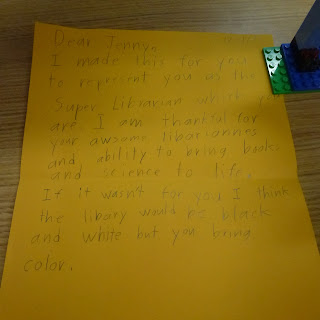 Dear Jenny,
I made this for you
to represent you as the
Super Librarian which you
are. I am thankful for
your awsome libariannes
and ability to bring books
and science to life.
If it wasn't for you I think
the libary would be black
and white but you bring
color.